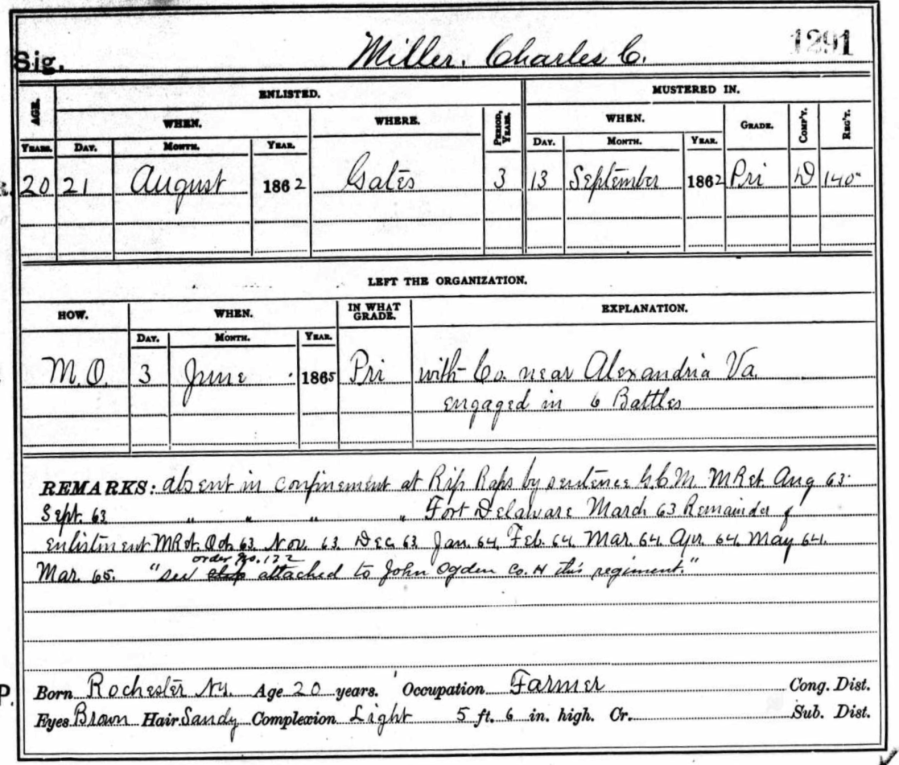 Sig. Miller, Charles C. 1291
ENLISTED. MUSTERED IN.
AGE. WHEN. WHERE. PERIOD, YEARS. WHEN. GRADE. COMP'Y. REG'T.
YEARS. DAY. MONTH. YEAR. DAY. MONTH. YEAR.
20 21 August 1862 Gates 3 13 September 1862 Pri D 140
LEFT THE ORGANIZATION.
HOW. WHEN. IN WHAT GRADE. EXPLANATION.
DAY. MONTH. YEAR.
M.O. 3 June 1865 Pri with Co. near Alexandria Va.
engaged in 6 Battles
REMARKS: absent in confinement at Rip Raps by sentence G.C.M. M Ret Aug 63
Sept. 63 " " " " Fort Delaware March 63 Remainder of
enlistment M Ret. Oct. 63. Nov. 63. Dec. 63. Jan. 64. Feb. 64. Mar. 64. Apr. 64. May 64.
order No. 122
Mar. 65. "see attached to John Ogden Co. H this regiment."
P. Born Rochester N.Y. Age 20 years. Occupation Farmer Cong. Dist.
Eyes Brown Hair Sandy Complexion Light 5 ft. 6 in. high. Cr. Sub. Dist.